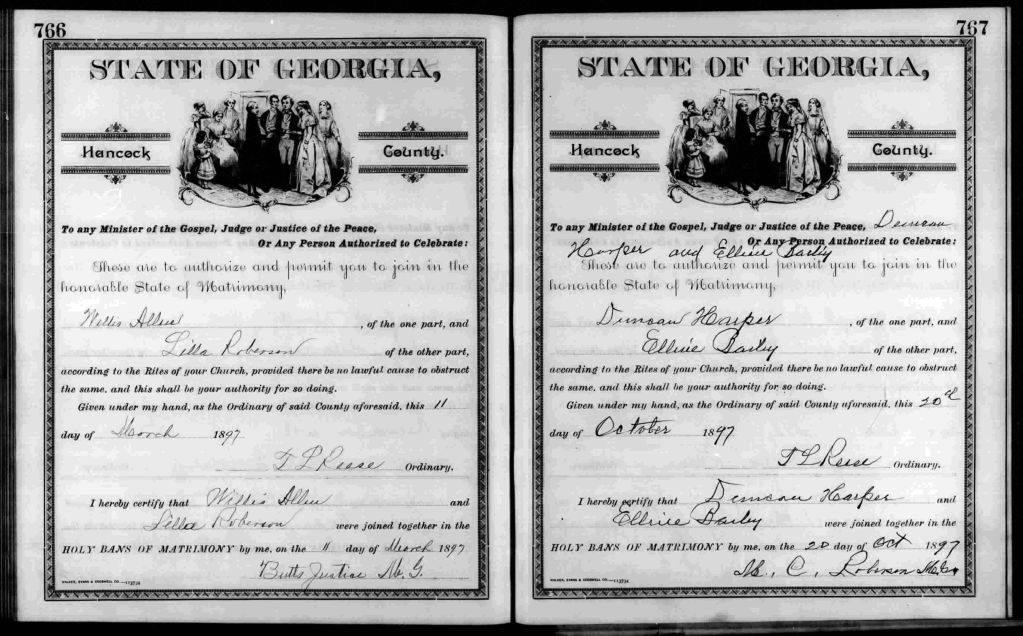 766
STATE OF GEORGIA,
Hancock County.
To any Minister of the Gospel, Judge or Justice of the Peace,
Or Any Person Authorized to Celebrate:
These are to authorize and permit you to join in the
honorable State of Matrimony,
Willis Allen, of the one part, and
Lilla Roberson of the other part,
according to the Rites of your Church, provided there be no lawful cause to obstruct
the same, and this shall be your authority for so doing.
Given under my hand, as the Ordinary of said County aforesaid, this 11
day of March 1897
T L Reese Ordinary.
I hereby certify that Willis Allen and
Lilla Roberson were joined together in the
HOLY BANS OF MATRIMONY by me, on the 11 day of March 1897
Butts Justice M. G.
WALKER, EVANS & COGSWELL CO.—113734
767
STATE OF GEORGIA,
Hancock County.
To any Minister of the Gospel, Judge or Justice of the Peace, Duncan
Or Any Person Authorized to Celebrate:
Harper and Elline Baily
These are to authorize and permit you to join in the
honorable State of Matrimony,
Duncan Harper, of the one part, and
Elline Baily of the other part,
according to the Rites of your Church, provided there be no lawful cause to obstruct
the same, and this shall be your authority for so doing.
Given under my hand, as the Ordinary of said County aforesaid, this 20d
day of October 1897
T L Reese Ordinary.
I hereby certify that Duncan Harper and
Elline Baily were joined together in the
HOLY BANS OF MATRIMONY by me, on the 20 day of Oct 1897
M, C, Roberson M.G.
WALKER, EVANS & COGSWELL CO.—113734